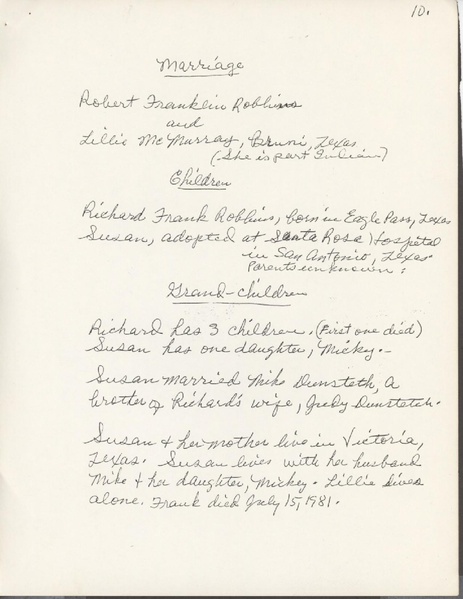 10.
Marriage
Robert Franklin Robbins
and
Lillie McMurray, Bruni, Texas
(She is part Indian)
Children
Richard Frank Robbins, born in Eagle Pass, Texas
Susan, adopted at Santa Rosa Hospital
in San Antonio, Texas.
Parents unknown.
Grand-children
Richard has 3 children. (First one died)
Susan has one daughter, Mickey.-
Susan married Mike Dunsteth, a
brother of Richard's wife, Judy Dunsteth.
Susan & her mother live in Victoria,
Texas. Susan lives with her husband
Mike & her daughter, Mickey. Lillie lives
alone. Frank died July 15, 1981.